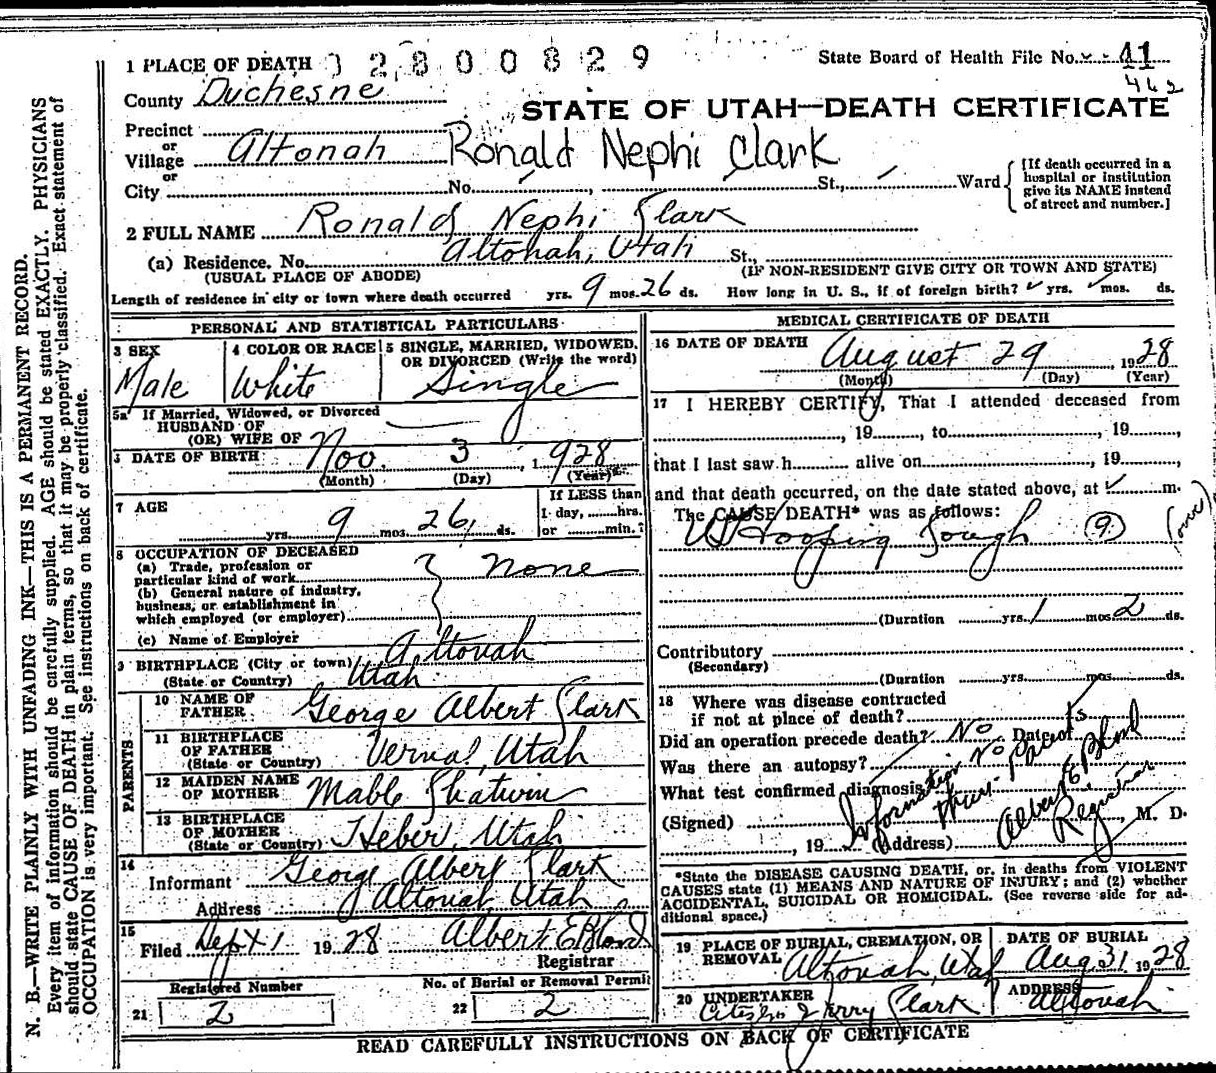 1 PLACE OF DEATH 02800829 State Board of Health File No. 41
462
County Duchesne
STATE OF UTAH—DEATH CERTIFICATE
Precinct
or
Village Altonah Ronald Nephi Clark
or
City No. , St., Ward
[If death occurred in a
hospital or institution
give its NAME instead
of street and number.]
2 FULL NAME Ronald Nephi Clark
(a) Residence. No. Altonah, Utah St.,
(USUAL PLACE OF ABODE) (IF NON-RESIDENT GIVE CITY OR TOWN AND STATE)
Length of residence in city or town where death occurred yrs. 9 mos. 26 ds. How long in U. S., if of foreign birth? yrs. mos. ds.
PERSONAL AND STATISTICAL PARTICULARS
3 SEX
Male
4 COLOR OR RACE
White
5 SINGLE, MARRIED, WIDOWED,
OR DIVORCED (Write the word)
Single
5a If Married, Widowed, or Divorced
HUSBAND OF
(OR) WIFE OF
6 DATE OF BIRTH Nov. 3, 1928
(Month) (Day) (Year)
7 AGE
yrs. 9 mos. 26 ds.
If LESS than
1 day, hrs.
or min.?
8 OCCUPATION OF DECEASED
(a) Trade, profession or
particular kind of work none
(b) General nature of industry,
business, or establishment in
which employed (or employer)
(c) Name of Employer
9 BIRTHPLACE (City or town) Altonah
(State or Country) Utah
PARENTS
10 NAME OF
FATHER George Albert Clark
11 BIRTHPLACE
OF FATHER
(State or Country) Vernal, Utah
12 MAIDEN NAME
OF MOTHER Mable
13 BIRTHPLACE
OF MOTHER
(State or Country) Heber, Utah
14
Informant George Albert Clark
Address Altonah Utah
15
Filed Sept 1 1928 Albert E
Registrar
Registered Number
21 2
No. of Burial or Removal Permit
22 2
MEDICAL CERTIFICATE OF DEATH
16 DATE OF DEATH August 29, 1928
(Month) (Day) (Year)
17 I HEREBY CERTIFY, That I attended deceased from
, 19 , to , 19 ,
that I last saw h alive on , 19 ,
and that death occurred, on the date stated above, at m.
The CAUSE DEATH* was as follows:
Whooping Cough 9 (over)
(Duration yrs. 1 mos. 2 ds.
Contributory
(Secondary)
(Duration yrs. mos. ds.
18 Where was disease contracted
if not at place of death?
Did an operation precede death? No Date
Was there an autopsy? No
What test confirmed diagnosis
Information Parents
(Signed) Albert E Registrar , M. D.
, 19 (Address)
*State the DISEASE CAUSING DEATH, or, in deaths from VIOLENT
CAUSES state (1) MEANS AND NATURE OF INJURY; and (2) whether
ACCIDENTAL, SUICIDAL OR HOMICIDAL. (See reverse side for ad-
ditional space.)
19 PLACE OF BURIAL, CREMATION, OR
REMOVAL Altonah, Utah
DATE OF BURIAL
Aug 31 1928
20 UNDERTAKER
Clark
ADDRESS
Altonah
READ CAREFULLY INSTRUCTIONS ON BACK OF CERTIFICATE
N. B.—WRITE PLAINLY WITH UNFADING INK—THIS IS A PERMANENT RECORD.
Every item of information should be carefully supplied. AGE should be stated EXACTLY. PHYSICIANS
should state CAUSE OF DEATH in plain terms, so that it may be properly classified. Exact statement of
OCCUPATION is very important. See instructions on back of certificate.